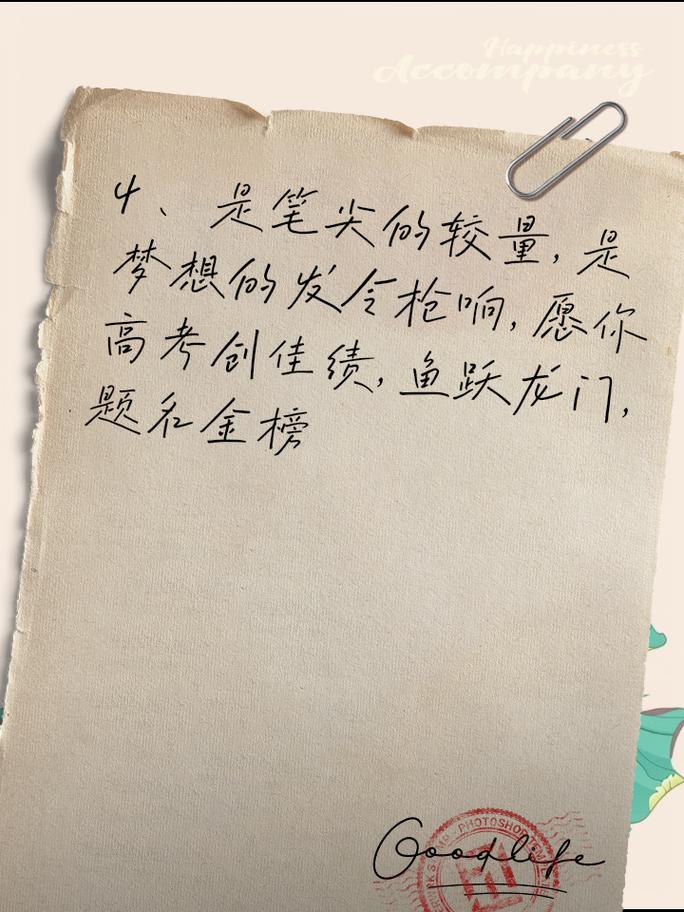 Happiness
Accompany
4、是笔尖的较量,是
梦想的发令枪响,愿你
高考创佳绩,鱼跃龙门,
题名金榜
Goodlife
PHOTOSHOP